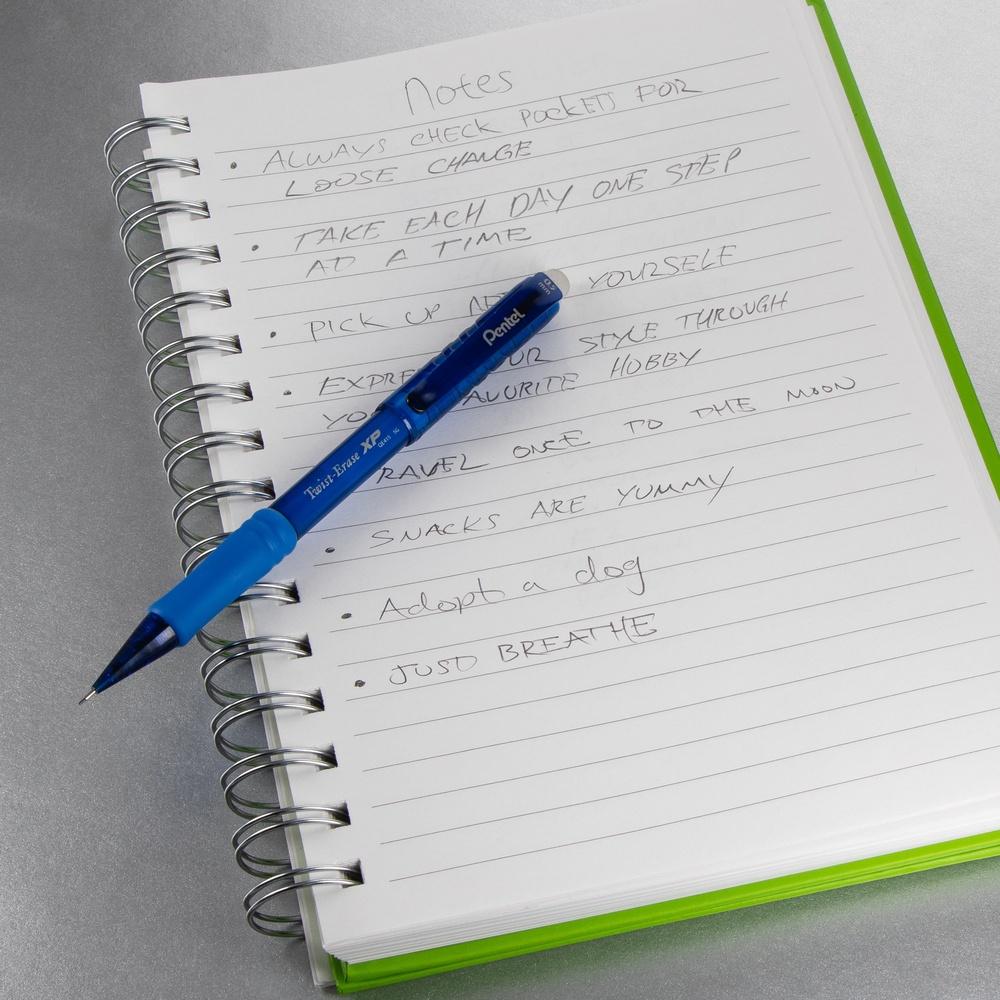 Notes
• ALWAYS CHECK POCKETS FOR
LOOSE CHANGE
• TAKE EACH DAY ONE STEP
AD A TIME
• PICK UP YOURSELF
• STYLE THROUGH
HOBBY
ONCE TO THE MOON
• SNACKS ARE YUMMY
• Adopt a dog
• JUST BREATHE
0.5
mm
Pentel
Twist-Erase XP
QE415